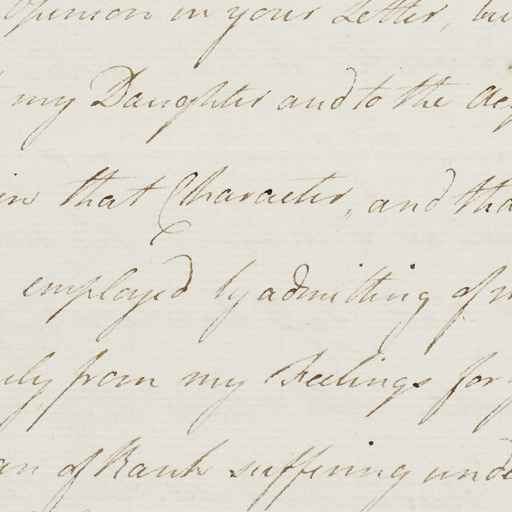 Opinion in your Letter, bu
my Daughter and to the de
in that Character, and tha
employed by admitting of
ely from my Feelings for
an of Rank suffering und